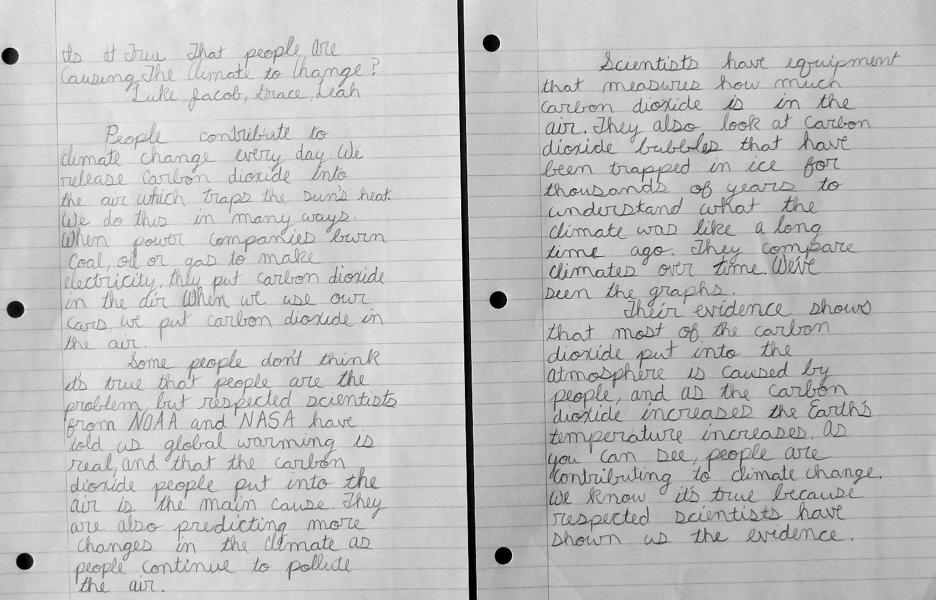 Is It True That people are
Causing The Climate to Change?
Luke, Jacob, Grace, Leah
People contribute to
climate change every day. We
release Carbon dioxide into
the air which traps the sun's heat.
We do this in many ways.
When power companies burn
Coal, oil or gas to make
electricity, they put carbon dioxide
in the air. When we use our
cars, we put carbon dioxide in
the air.
Some people don't think
it's true that people are the
problem, but respected scientists
from NOAA and NASA have
told us global warming is
real, and that the carbon
dioxide people put into the
air is the main cause. They
are also predicting more
changes in the climate as
people continue to pollute
the air.
Scientists have equipment
that measures how much
carbon dioxide is in the
air. They also look at carbon
dioxide bubbles that have
been trapped in ice for
thousands of years to
understand what the
climate was like a long
time ago. They compare
climates over time. We've
seen the graphs.
Their evidence shows
that most of the carbon
dioxide put into the
atmosphere is caused by
people, and as the carbon
dioxide increases the Earth's
temperature increases. As
you can see, people are
contributing to climate change.
We know it's true because
respected scientists have
shown us the evidence.